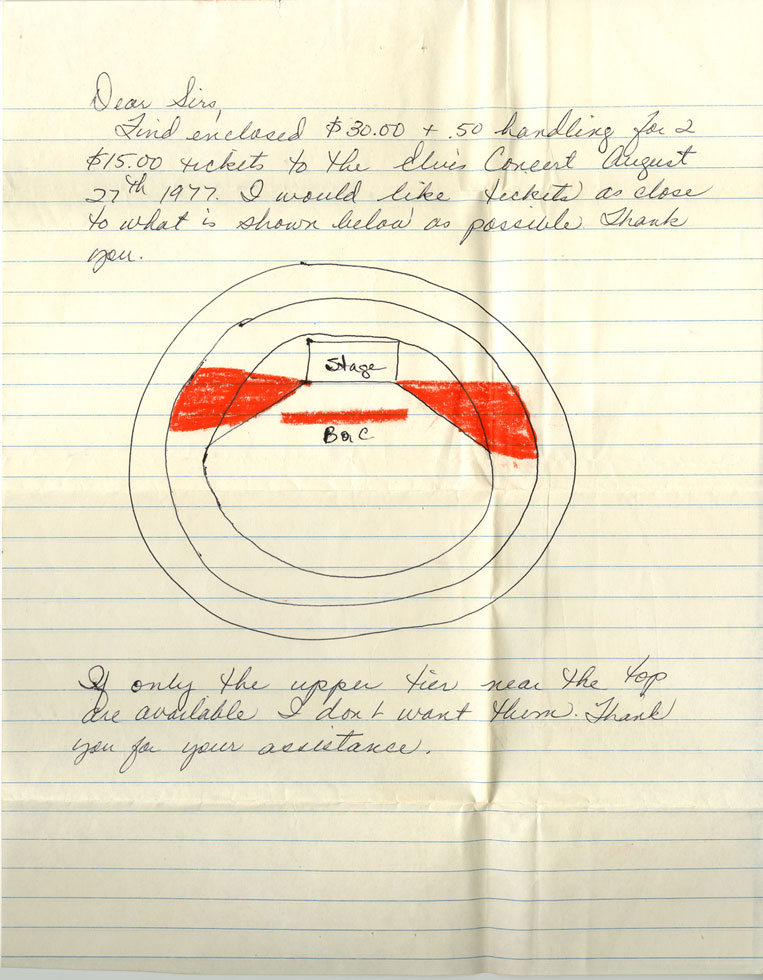 Dear Sirs,
Find enclosed $30.00 + .50 handling for 2
$15.00 tickets to the Elvis Concert August
27th 1977. I would like tickets as close
to what is shown below as possible. Thank
you.
Stage
B or C
If only the upper tier near the top
are available I don't want them. Thank
you for your assistance.